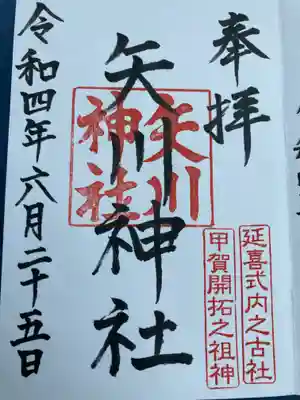 奉拝
延喜式内之古社
甲賀開拓之祖神
矢川神社
矢川
神社
令和四年六月二十五日